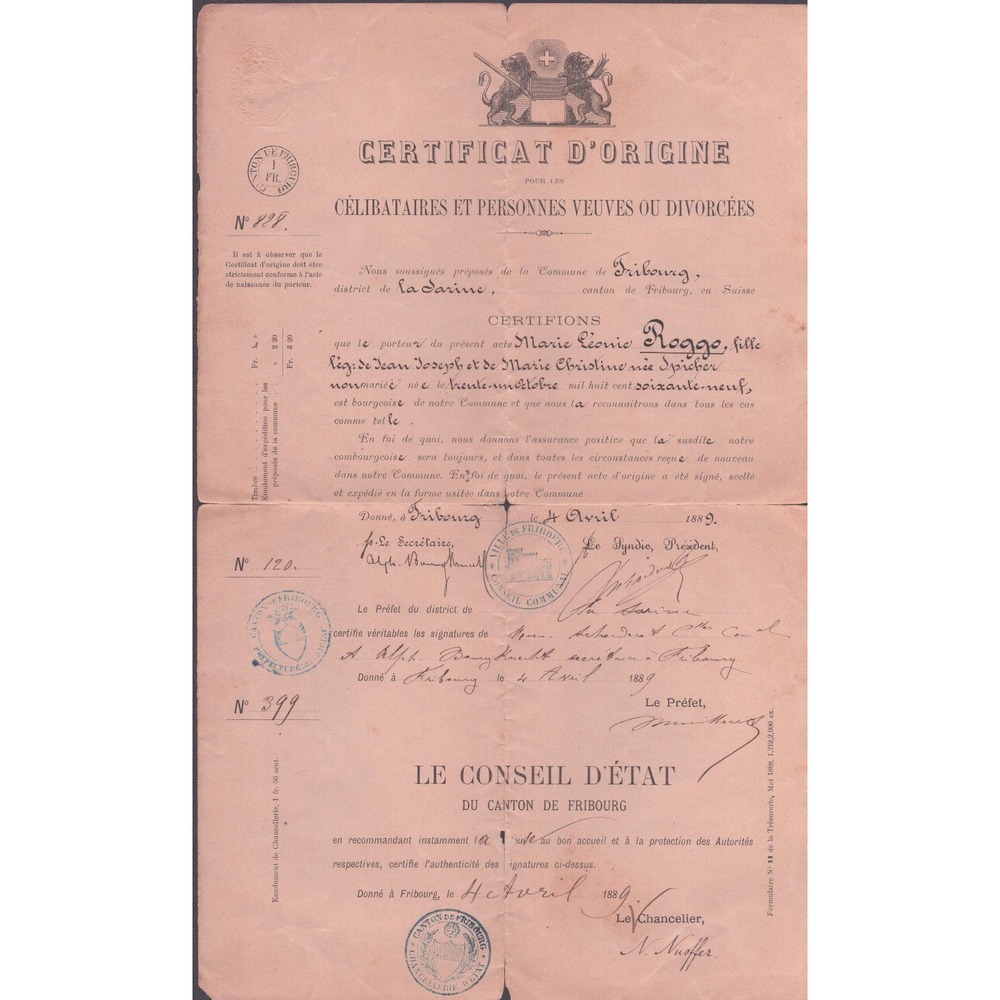 CERTIFICAT D'ORIGINE
POUR LES
CÉLIBATAIRES ET PERSONNES VEUVES OU DIVORCÉES
CANTON DE FRIBOURG
1
FR.
N° 828.
Il est à observer que le
Certificat d'origine doit être
strictement conforme à l'acte
de naissance du porteur.
Nous soussignés préposés de la Commune de Fribourg,
district de la Sarine, canton de Fribourg, en Suisse
CERTIFIONS
que le porteur du présent acte Marie Léonie Roggo, fille
lég: de Jean Joseph et de Marie Christine née Spicher
non marié née le trente-un Octobre mil huit cent soixante-neuf,
est bourgeoise de notre Commune et que nous la reconnaîtrons dans tous les cas
comme telle.
En foi de quoi, nous donnons l'assurance positive que la susdite notre
combourgeoise sera toujours, et dans toutes les circonstances reçue de nouveau
dans notre Commune. En foi de quoi, le présent acte d'origine a été signé, scellé
et expédié en la forme usitée dans notre Commune
Timbre Fr. 1 »
Emolument d'expédition pour les
préposés de la commune » 2 20
Fr. 3 20
Donné, à Fribourg le 4 Avril 1889.
p. Le Secrétaire, Le Syndic, Président,
Alph. Bourgknecht
VILLE DE FRIBOURG
CONSEIL COMMUNAL
N° 120.
CANTON DE FRIBOURG
Le Préfet du district de la Sarine
certifie véritables les signatures de
& Alph. Bourgknecht secrétaire à Fribourg
Donné à Fribourg le 4 Avril 1889
Le Préfet,
N° 399
LE CONSEIL D'ÉTAT
DU CANTON DE FRIBOURG
en recommandant instamment la au bon accueil et à la protection des Autorités
respectives, certifie l'authenticité des signatures ci-dessus.
Donné à Fribourg, le 4 Avril 1889
Le Chancelier,
N. Nuoffer.
CANTON DE FRIBOURG
CHANCELLERIE D'ETAT
Emolument de Chancellerie, 1 fr. 50 cent.
Formulaire N° 11 de la Trésorerie, Mai 1888.